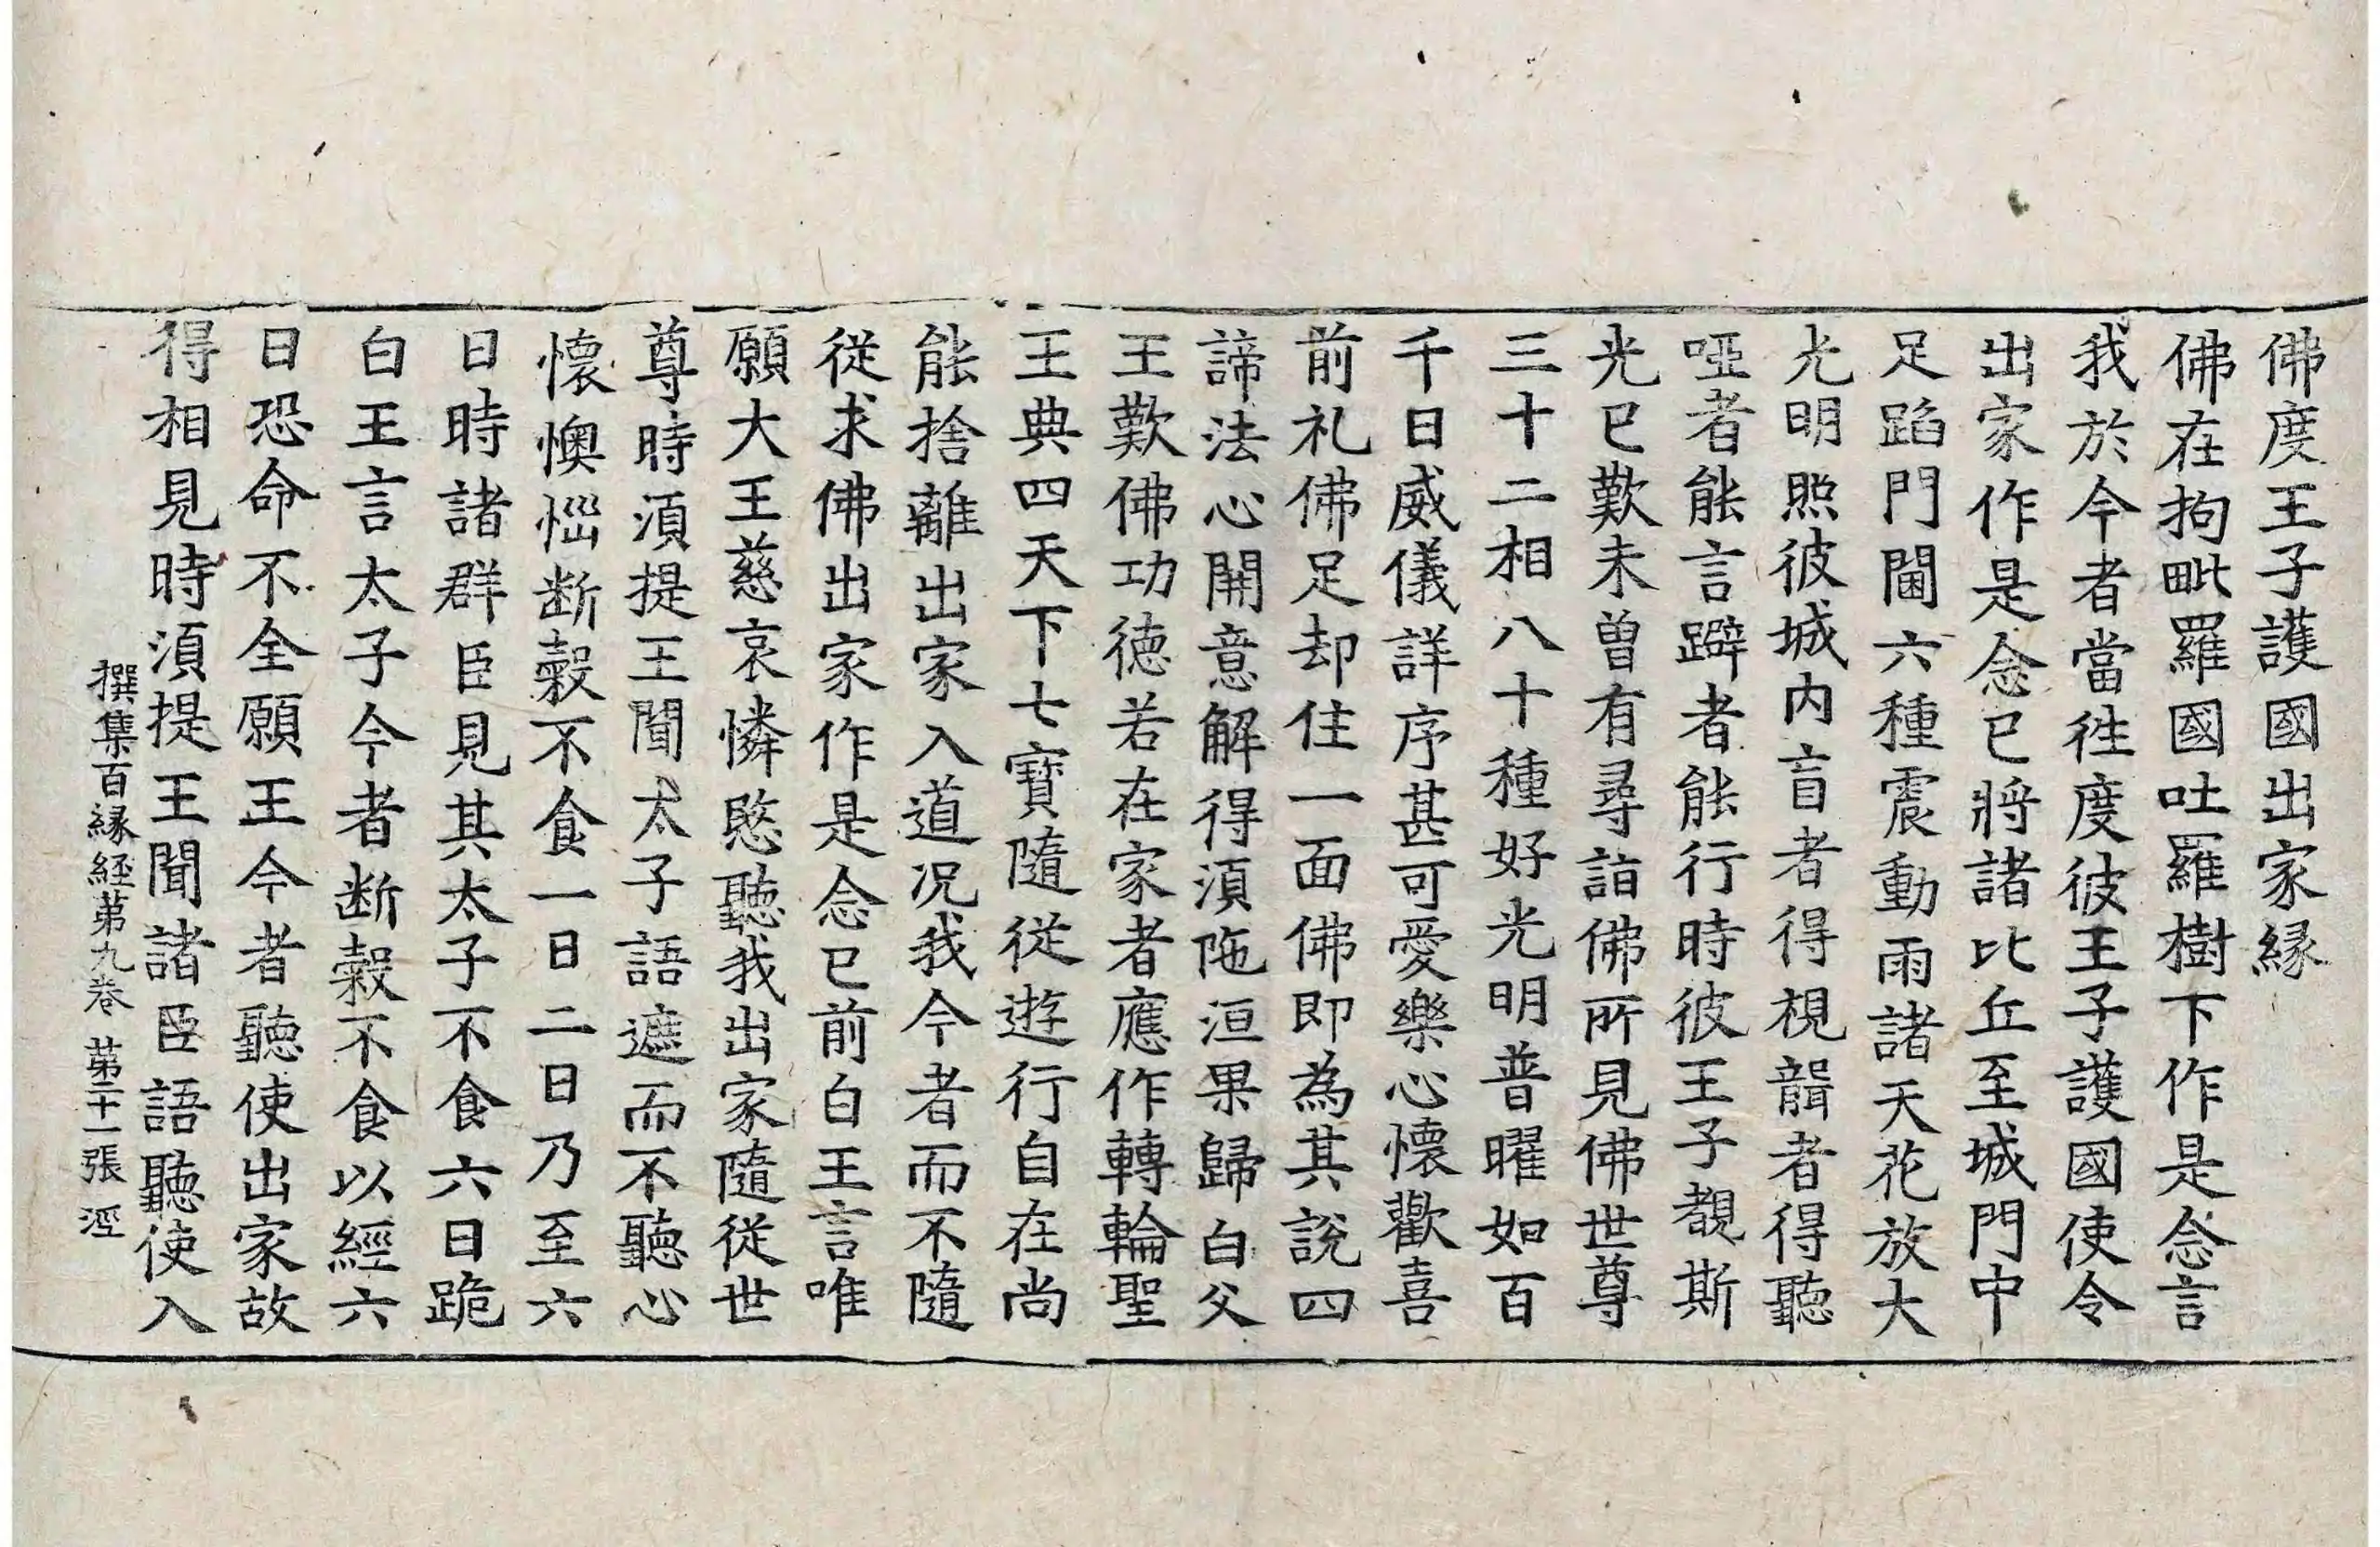 佛度王子護國出家縁
佛在拘毗羅國吐羅樹下作是念言
我於今者當徃度彼王子護國使令
出家作是念已將諸比丘至城門中
足蹈門閫六種震動雨諸天花放大
光明照彼城内盲者得視聾者得聽
啞者能言躃者能行時彼王子覩斯
光已歎未曾有尋詣佛所見佛世尊
三十二相八十種好光明普曜如百
千日威儀詳序甚可愛樂心懷歡喜
前礼佛足却住一面佛即為其說四
諦法心開意解得湏陁洹果歸白父
王歎佛功德若在家者應作轉輪聖
王典四天下七寶隨從遊行自在尚
能捨離出家入道况我今者而不隨
從求佛出家作是念已前白王言唯
願大王慈哀憐愍聽我出家隨從世
尊時湏提王聞太子語遮而不聽心
懷懊惱断糓不食一日二日乃至六
日時諸群臣見其太子不食六日跪
白王言太子今者断糓不食以經六
日恐命不全願王今者聽使出家故
得相見時湏提王聞諸臣語聽使入
撰集百縁経苐九卷 苐二十一張 涇